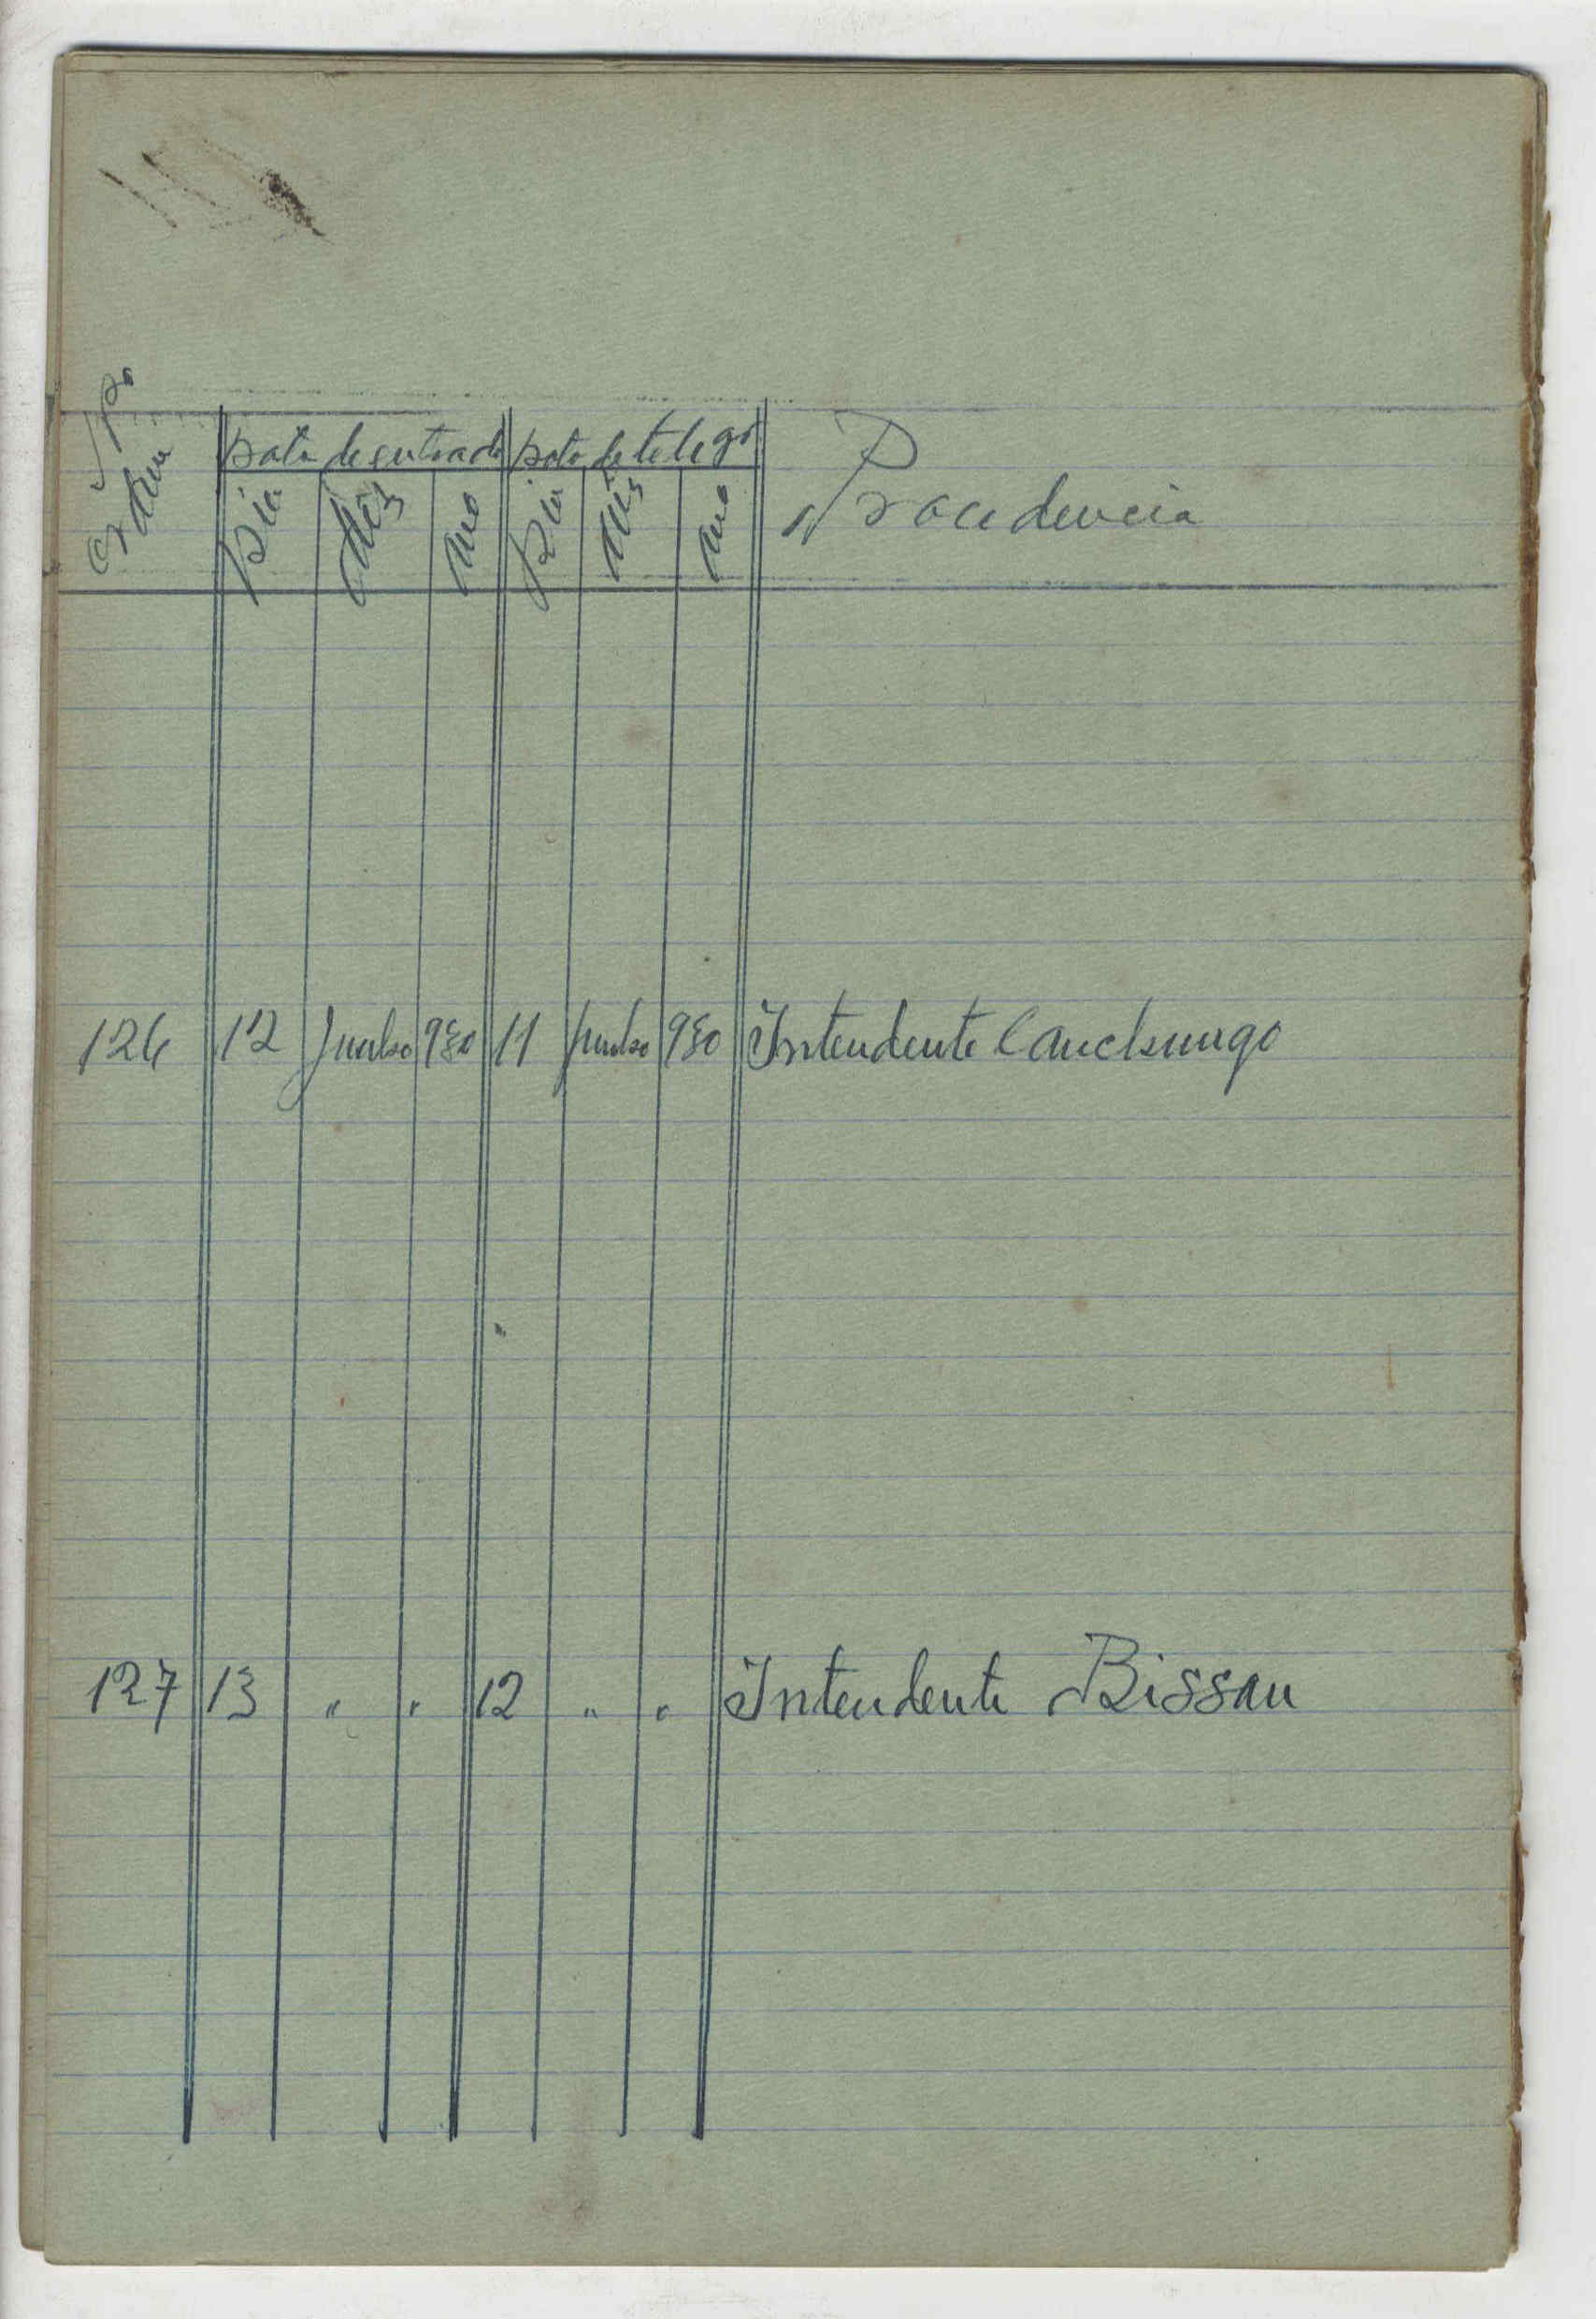 Nº Ordem
Data de entrada Data de telegr. Procedencia
Dia Mês Ano Dia Mês Ano
126 12 Junho 930 11 Junho 930 Intendente Canchungo
127 13 " " 12 " " Intendente Bissau